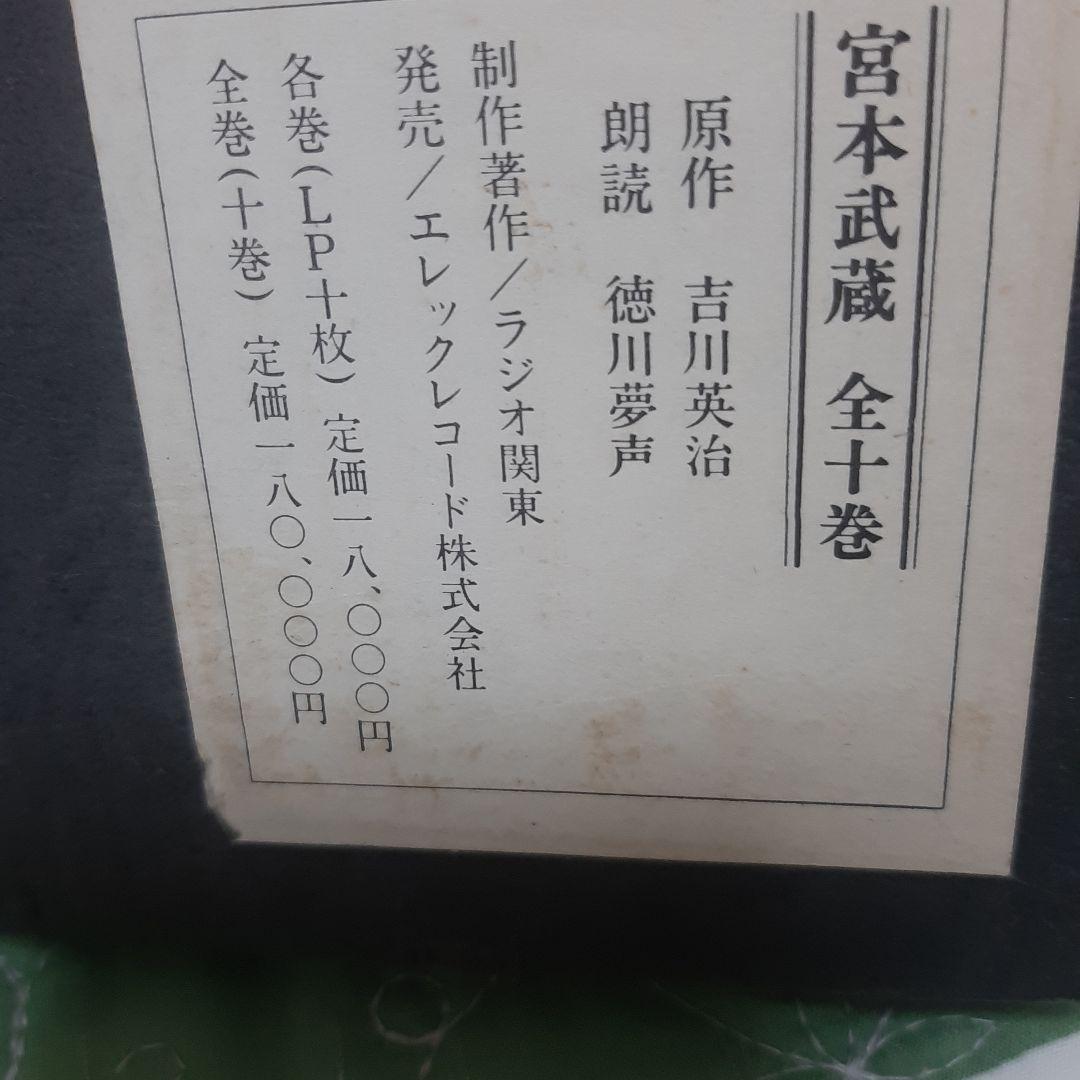 宮本武蔵 全十巻
原作 吉川英治
朗読 徳川夢声
制作著作/ラジオ関東
発売/エレックレコード株式会社
各巻(LP十枚) 定価一八、〇〇〇円
全巻(十巻) 定価一八〇、〇〇〇円